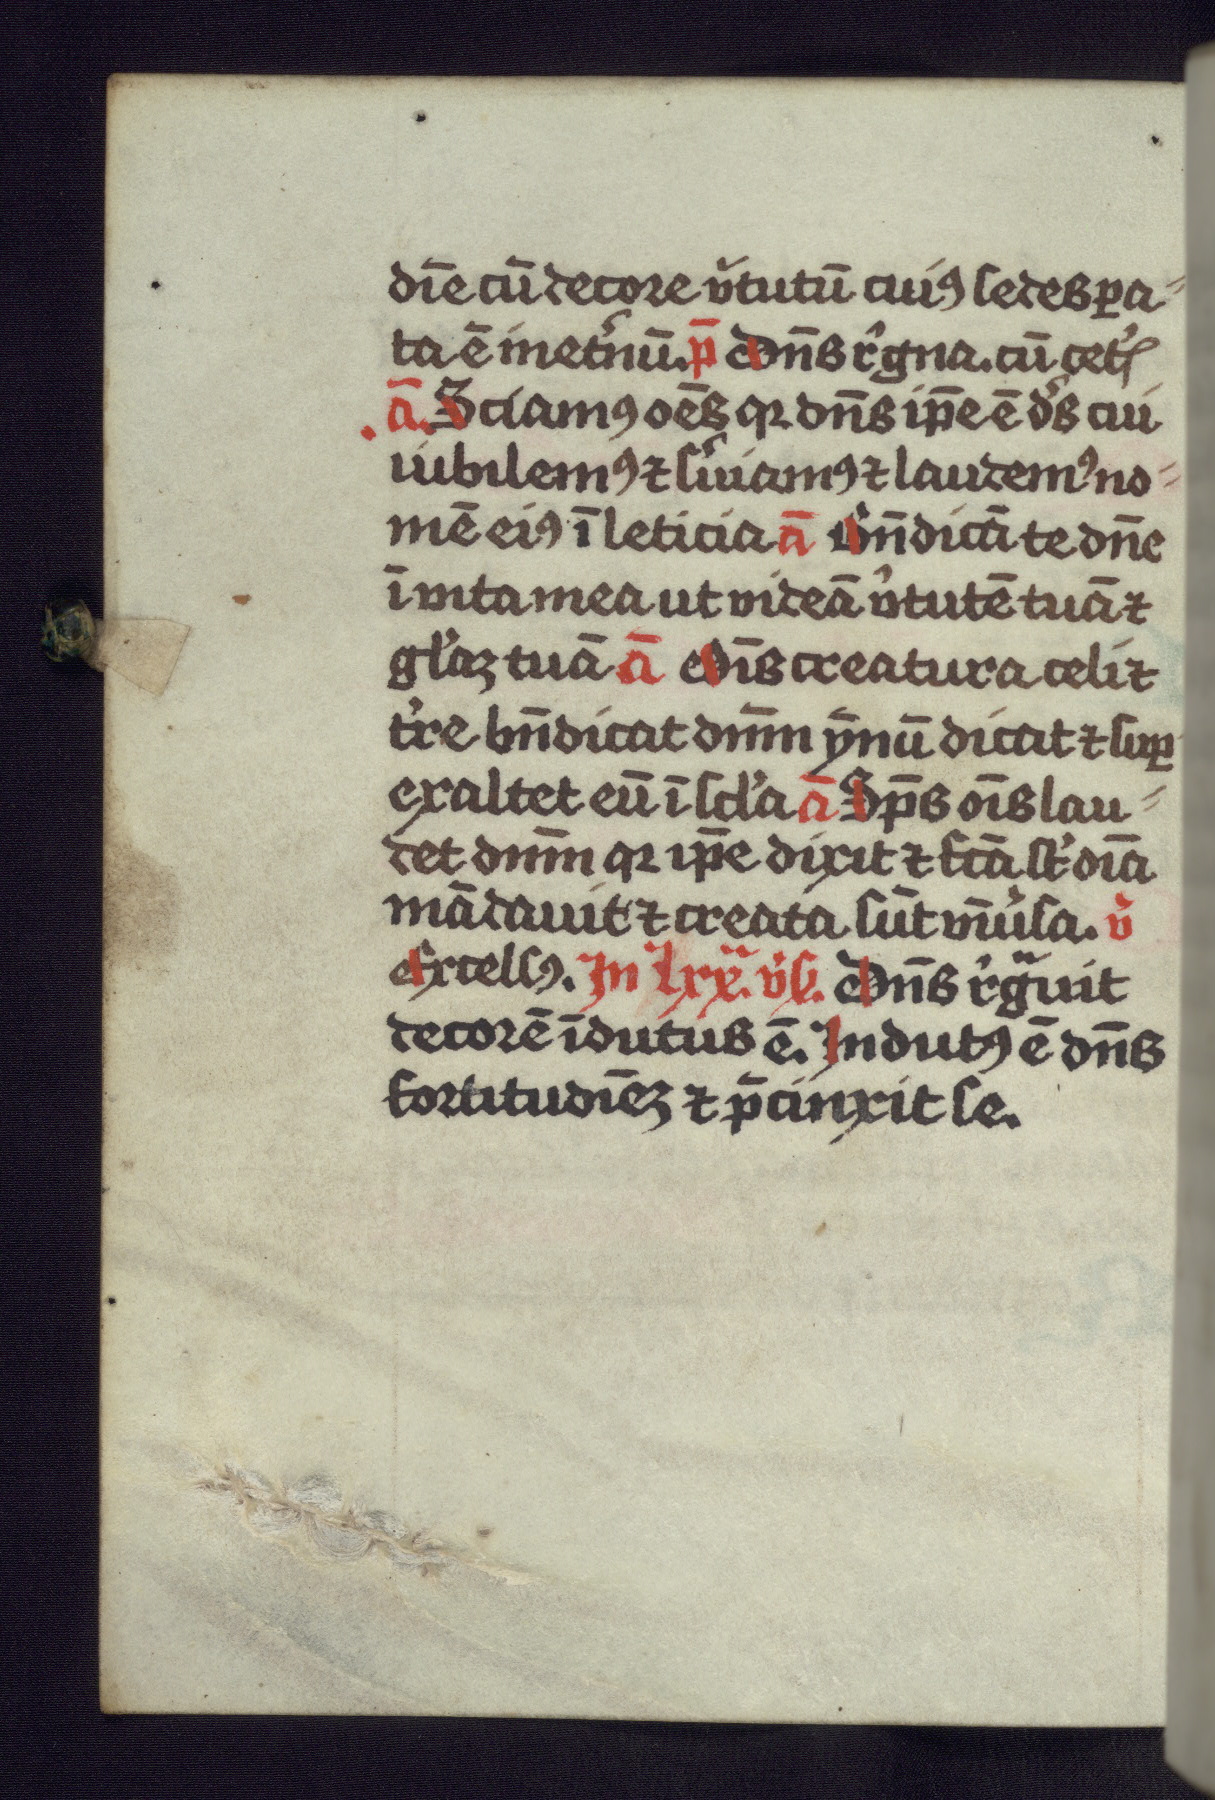 dīe cū decore v̓tutū cui⁹ sedes ꝑa-
ta ē ineťnū. p̄ Dn̄s r̓gna. cū ceť
ā. Sciam⁹ oēs qꝛ dn̄s ip̄e ē d̓s cui
iubilem⁹ ⁊ s̓uiam⁹ ⁊ laudem⁹ no-
mē ei⁹ ī leticia ā Bn̄dicā te dn̄e
ī uita mea ut uideā v̓tutē tuā ⁊
gl̓aꝫ tuā ā Oīs creatura celi ⁊
t̓re bn̄dicat dnm̄ ȳnū dicat ⁊ suꝑ
exaltet eū ī scl̓a ā Sp̄s oīs lau-
det dnm̄ qꝛ ip̄e dixit ⁊ fcā st̓ oīa
mādauit ⁊ creata sūt vniv̓sa. v̓
Excels⁹. In lxx. v̓s. Dn̄s r̓gͣuit
decorē īdutus ē. Indut⁹ ē dn̄s
fortitudīeꝫ ⁊ p̄cinxit se.